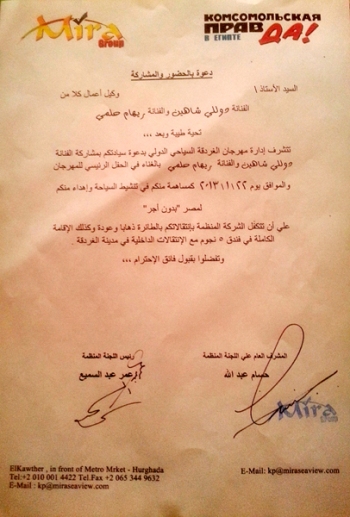 Mira
Group
КОМСОМОЛЬСКАЯ
ПРАВДА!
В ЕГИПТЕ
دعوة بالحضور والمشاركة
السيد الأستاذ \ وكيل أعمال كلا من
الفنانة دوللي شاهين والفنانة ريهام حلمي
تحية طيبة وبعد ,,,
تتشرف إدارة مهرجان الغردقة السياحي الدولي بدعوة سيادتكم بمشاركة الفنانة
دوللي شاهين والفنانة ريهام حلمي بالغناء في الحفل الرئيسي للمهرجان
والموافق يوم ٢٠١٣\١١\٢٢ كمساهمة منكم في تنشيط السياحة وإهداء منكم
لمصر "بدون أجر"
علي أن تتكفل الشركة المنظمة بإنتقالاتكم بالطائرة ذهابا وعودة وكذلك الإقامة
الكاملة في فندق ٥ نجوم مع الإنتقالات الداخلية في مدينة الغردقة .
وتفضلوا بقبول فائق الإحترام ,,,
المشرف العام علي اللجنة المنظمة
رئيس اللجنة المنظمة
حسام عبد الله
عمر عبد السميع
Mira
ElKawther , in front of Metro Mrket - Hurghada
Tel:+2 010 001 4422 Tel.Fax +2 065 344 9632
E-Mail : kp@miraseaview.com
E-Mail : kp@miraseaview.com